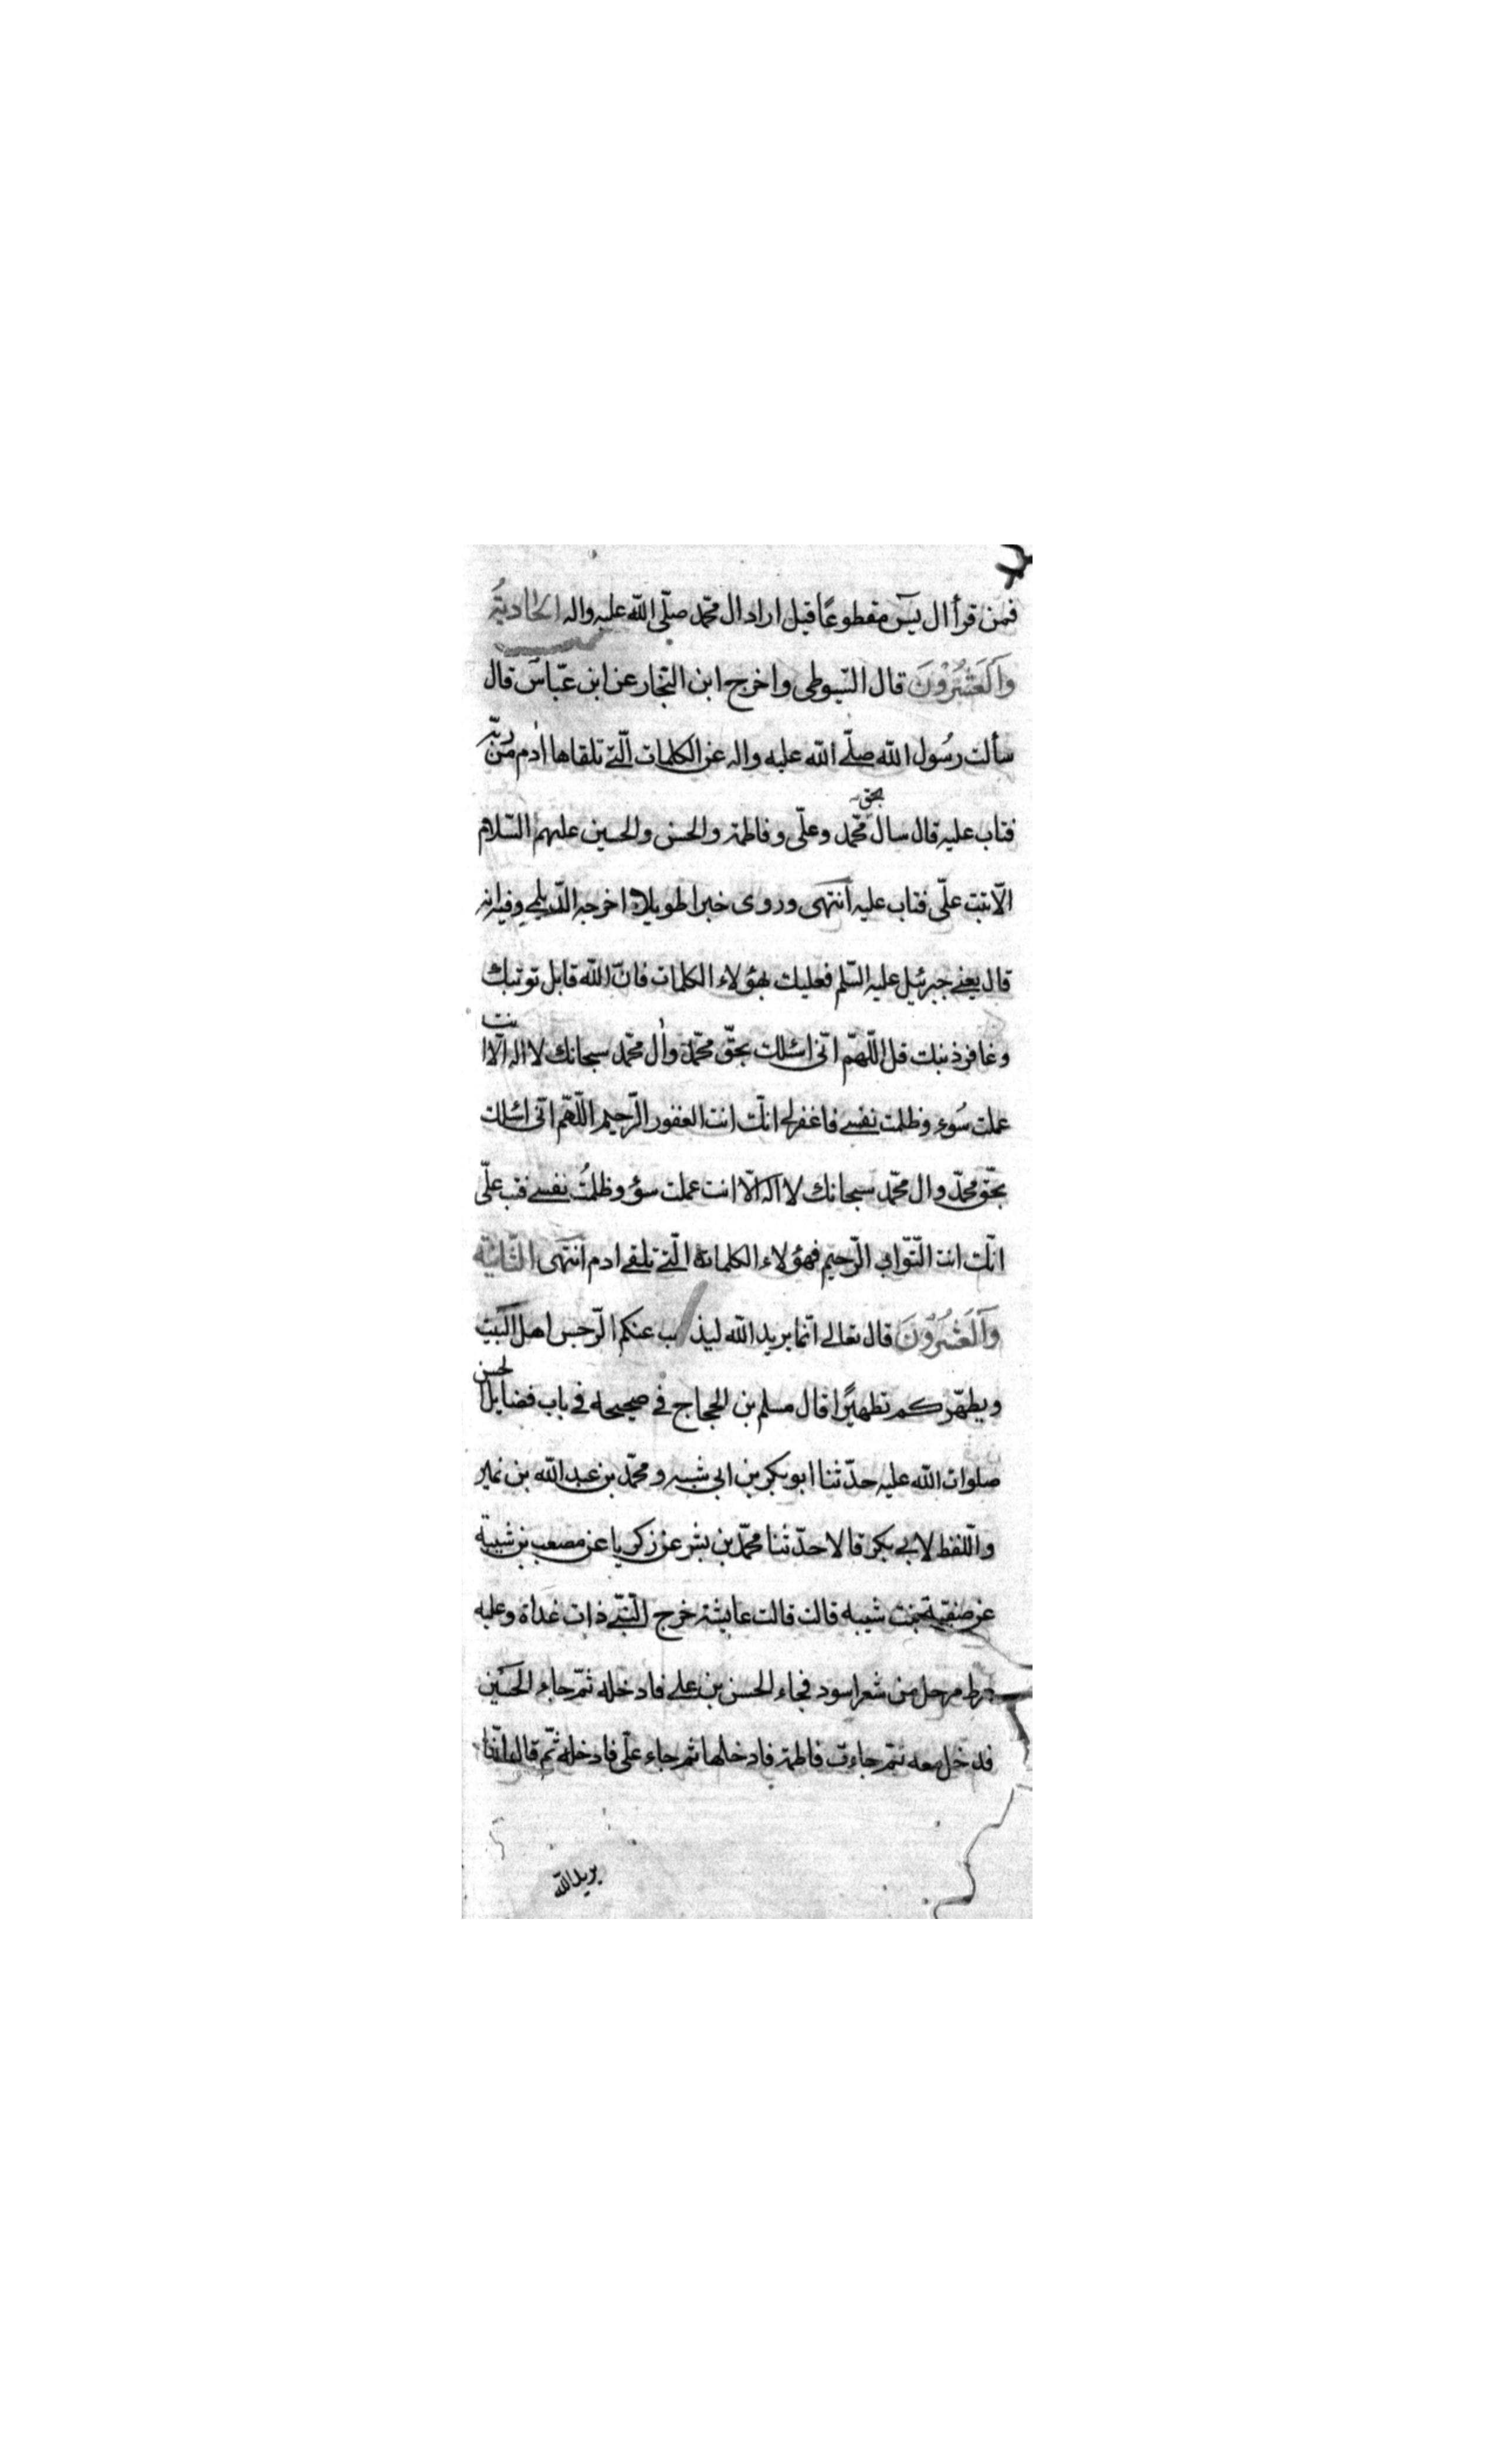 فمن قرأ ال يسٓ مقطوعًا قيل اراد ال محمّد صلّى اللّه عليه واله الحاديَة
وَالعَشرُونَ قال السّيوطى واخرج ابن النّجار عن ابن عبّاس قال
سألت رسُول اللّه صلّى اللّه عليه واله عن الكلمات الّتى تلقاها ادم من ربّه
فتاب عليه قال سال بحق محمّد وعلّى وفاطمة والحسن والحسين عليهم السّلام
الّا تبت علّى فتاب عليه انتهى وروى خبرا طويلا اخرجه الدّيلمى وفيه انه
قال يعنى جبرئيل عليه السّلم فعليك بهؤلاء الكلمات فانّ اللّه قابل توبتك
وغافر ذنبك قل اللّهمّ انّى اسئلك بحقّ محمّد وال محمّد سبحانك لا اله الّا انت
عملت سُوء وظلمت نفسى فاغفرلى انّك انت الغفور الرّحيم اللّهمّ انّى اسئلك
بحّق محمّد وال محمّد سبحانك لا اله الّا انت عملت سؤ وظلمتُ نفسى فتب علّى
انّك انت التّوّاب الرّحيم فهؤلاء الكلمات الّتى تلقى ادم انتهى الثّانيَة
وَالعَشرُونَ قال تعالى انّما يريد اللّه ليذهب عنكم الرّجس اهل البَيت
ويطهّركم تطهيرًا قال مسلم بن الحجاج فى صحيحه فى باب فضايل الحسن
صلوات اللّه عليه حدّثنا ابو بكر بن ابى شيبه ومحمّد بن عبد اللّه بن نمير
واللّفظ لابى بكر قالا حدّثنا محمّد بن بشر عن زكريا عن مصعب بن شيبة
عن صفيّة بنت شيبه قالت قالت عايشة خرج النّبّى ذات غداة وعليه
مرط مرحل من شعر اسود فجاء الحسن بن على فادخله ثمّ جاء الحسَين
فدخل معه ثمّ جاءت فاطمة فادخلها ثم جاء علّى فادخله ثمّ قال انّما
يريد اللّه